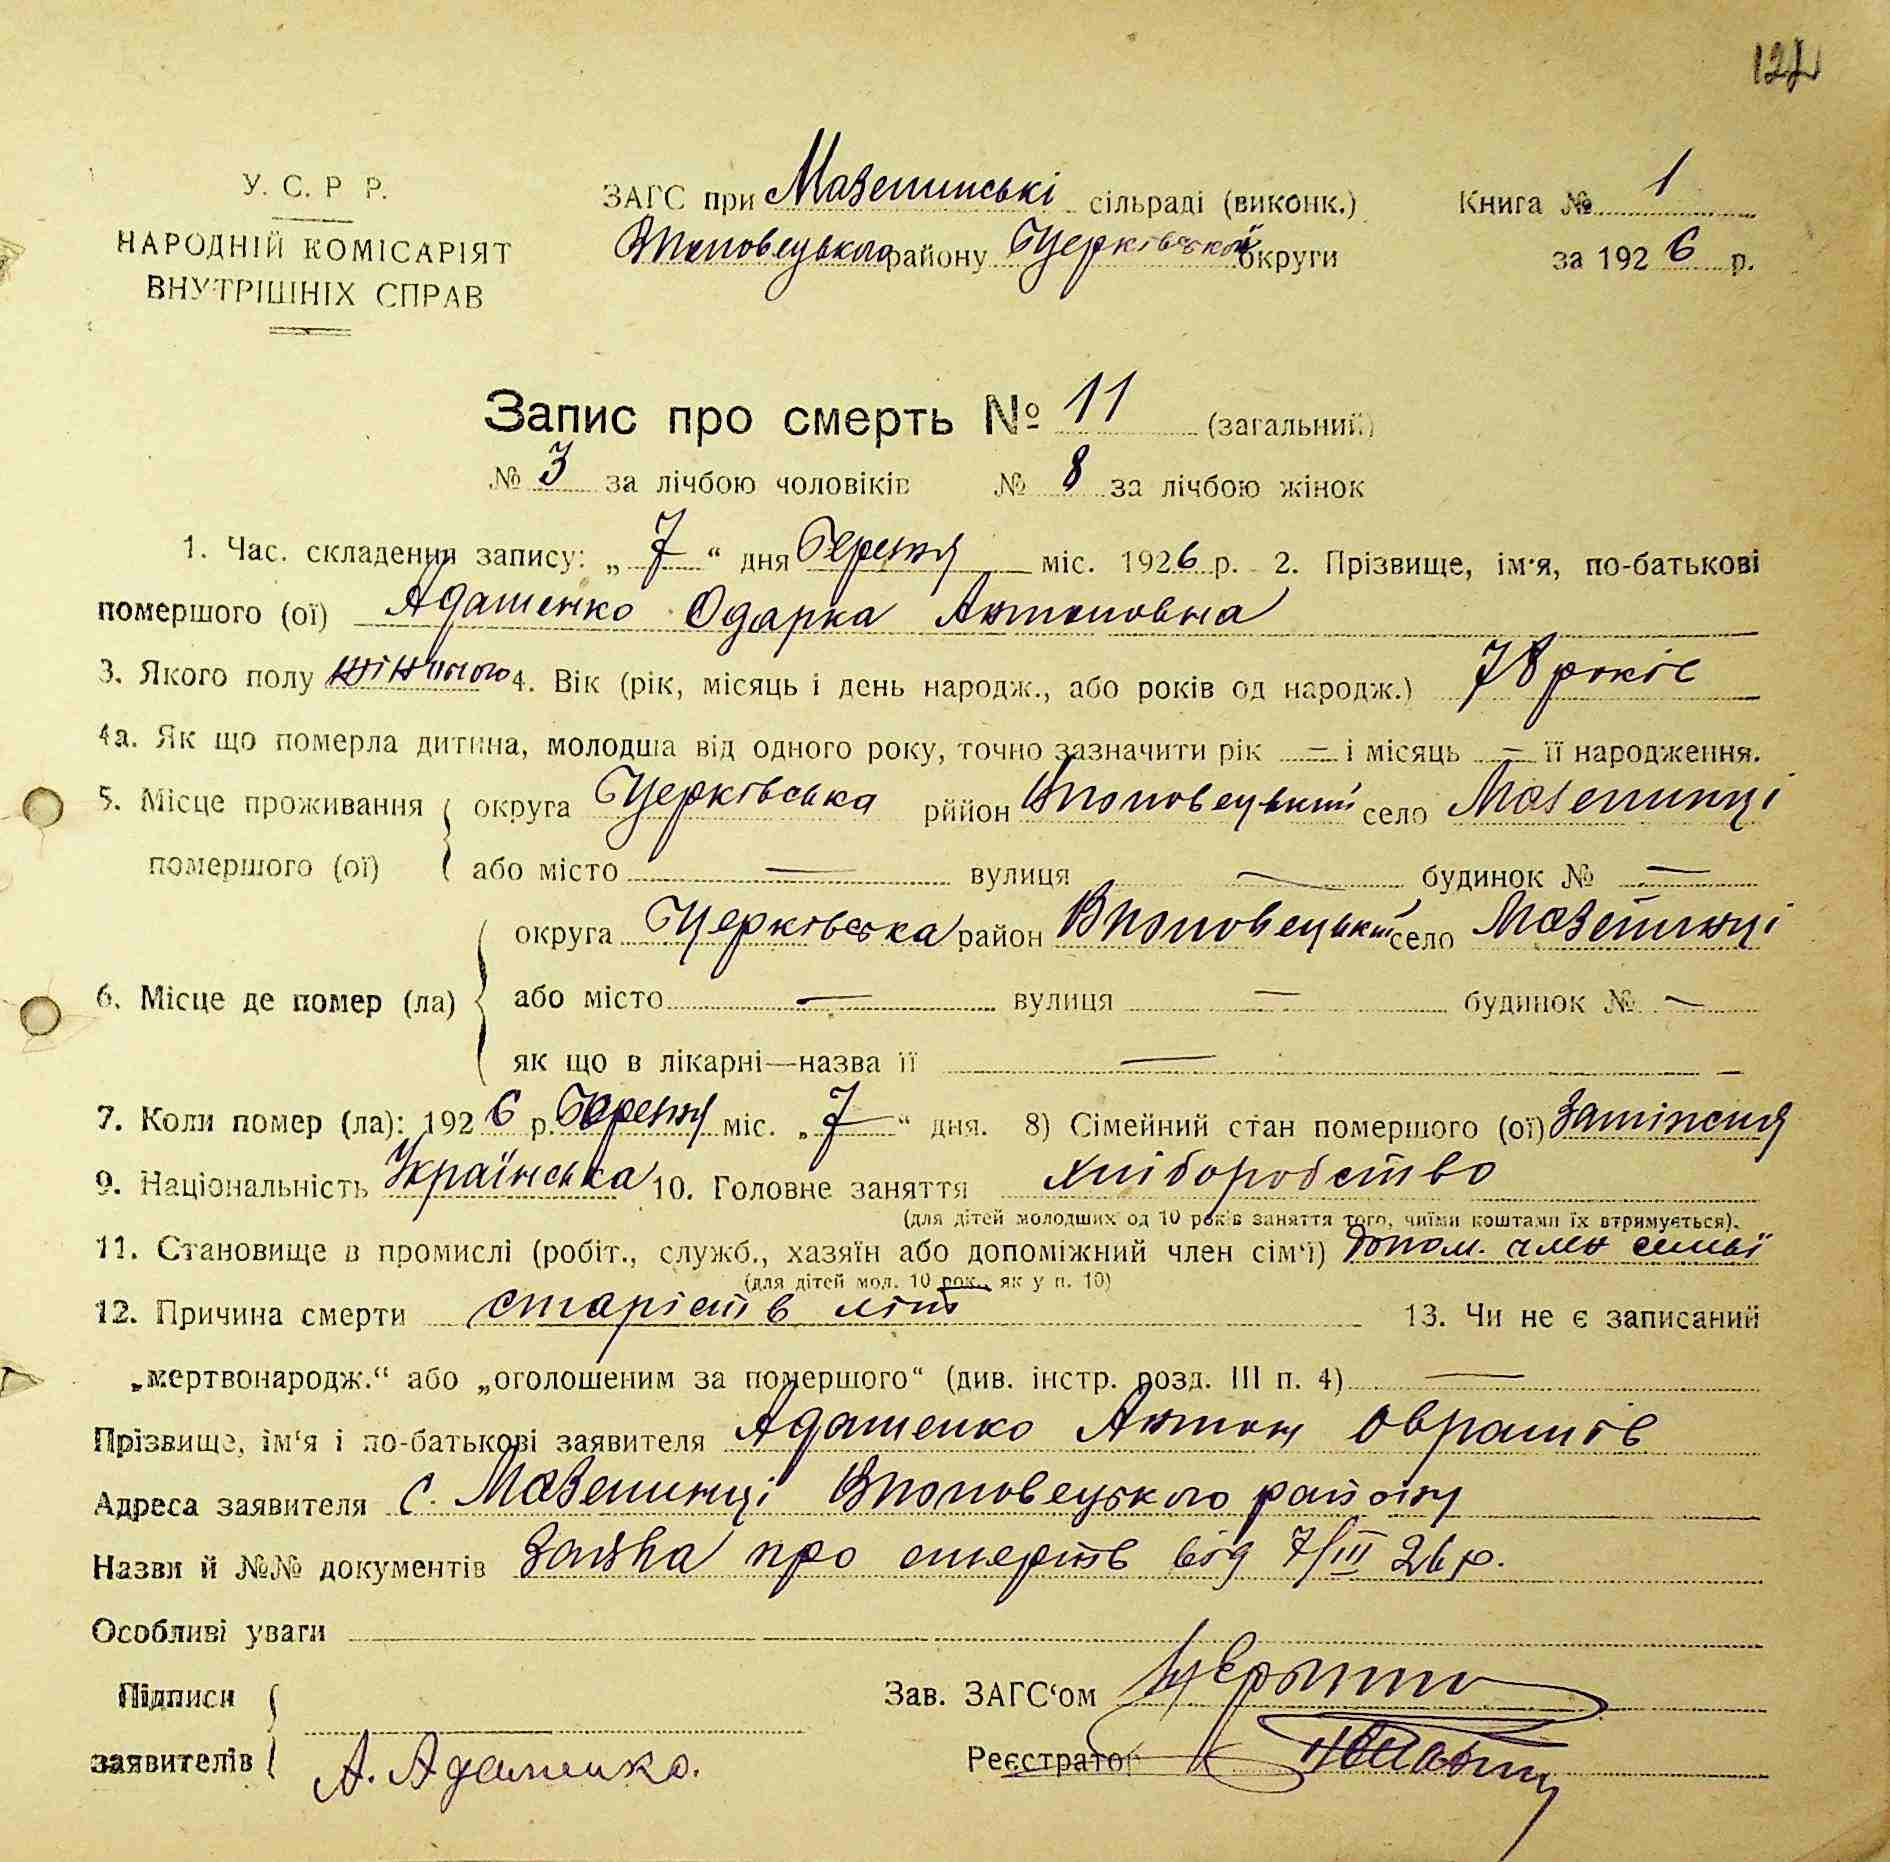 У. С. Р Р.
НАРОДНІЙ КОМІСАРІЯТ
ВНУТРІШНІХ СПРАВ
ЗАГС при Мазепинські сільраді (виконк.)
району Бцерківської округи
Книга № 1
за 1926 р.
Запис про смерть № 11 (загальний)
№ 3 за лічбою чоловіків № 8 за лічбою жінок
1. Час. складення запису: „ 7 “ дня березня міс. 1926 р. 2. Прізвище, ім'я, по-батькові
помершого (ої) Адаменко Одарка Антоновна
3. Якого полу жіночого 4. Вік (рік, місяць і день народж., або років од народж.) 78 років
4а. Як що померла дитина, молодша від одного року, точно зазначити рік — і місяць — її народження.
5. Місце проживання помершого (ої) округа Бцерківська рййон село Мазепинці
або місто — вулиця — будинок № —
6. Місце де помер (ла) округа Бцерківська район село Мазепинці
або місто — вулиця — будинок № —
як що в лікарні—назва її —
7. Коли помер (ла): 1926 р. березня міс. „ 7 “ дня. 8) Сімейний стан помершого (ої)
9. Національність Українська 10. Головне заняття хліборобство
(для дітей молодших од 10 років заняття того, чиїми коштами їх втримується).
11. Становище в промислі (робіт., служб., хазяїн або допоміжний член сім'ї) допом. член семьї
(для дітей мол. 10 рок., як у п. 10)
12. Причина смерти старість літ 13. Чи не є записаний
„мертвонародж.“ або „оголошеним за помершого“ (див. інстр. розд. III п. 4) —
Прізвище, ім'я і по-батькові заявителя Адаменко Антон
Адреса заявителя с. Мазепинці району
Назви й №№ документів Заява про смерть від 7/III 26 р.
Особливі уваги
Підписи
заявителів А. Адаменко.
Зав. ЗАГС'ом
Реєстратор